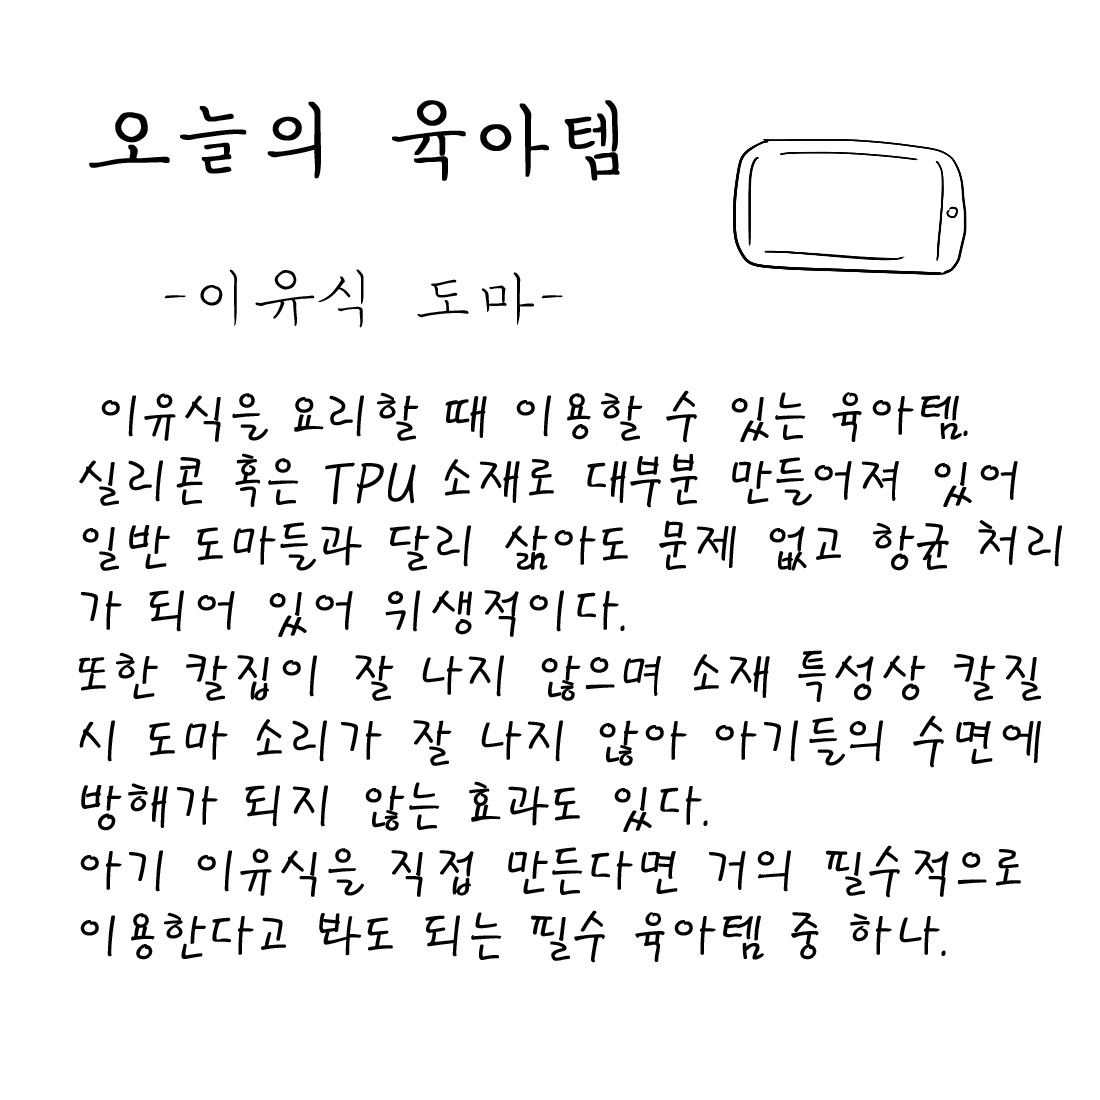 오늘의 육아템
-이유식 도마-
이유식을 요리할 때 이용할 수 있는 육아템.
실리콘 혹은 TPU 소재로 대부분 만들어져 있어
일반 도마들과 달리 삶아도 문제 없고 항균 처리
가 되어 있어 위생적이다.
또한 칼집이 잘 나지 않으며 소재 특성상 칼질
시 도마 소리가 잘 나지 않아 아기들의 수면에
방해가 되지 않는 효과도 있다.
아기 이유식을 직접 만든다면 거의 필수적으로
이용한다고 봐도 되는 필수 육아템 중 하나.